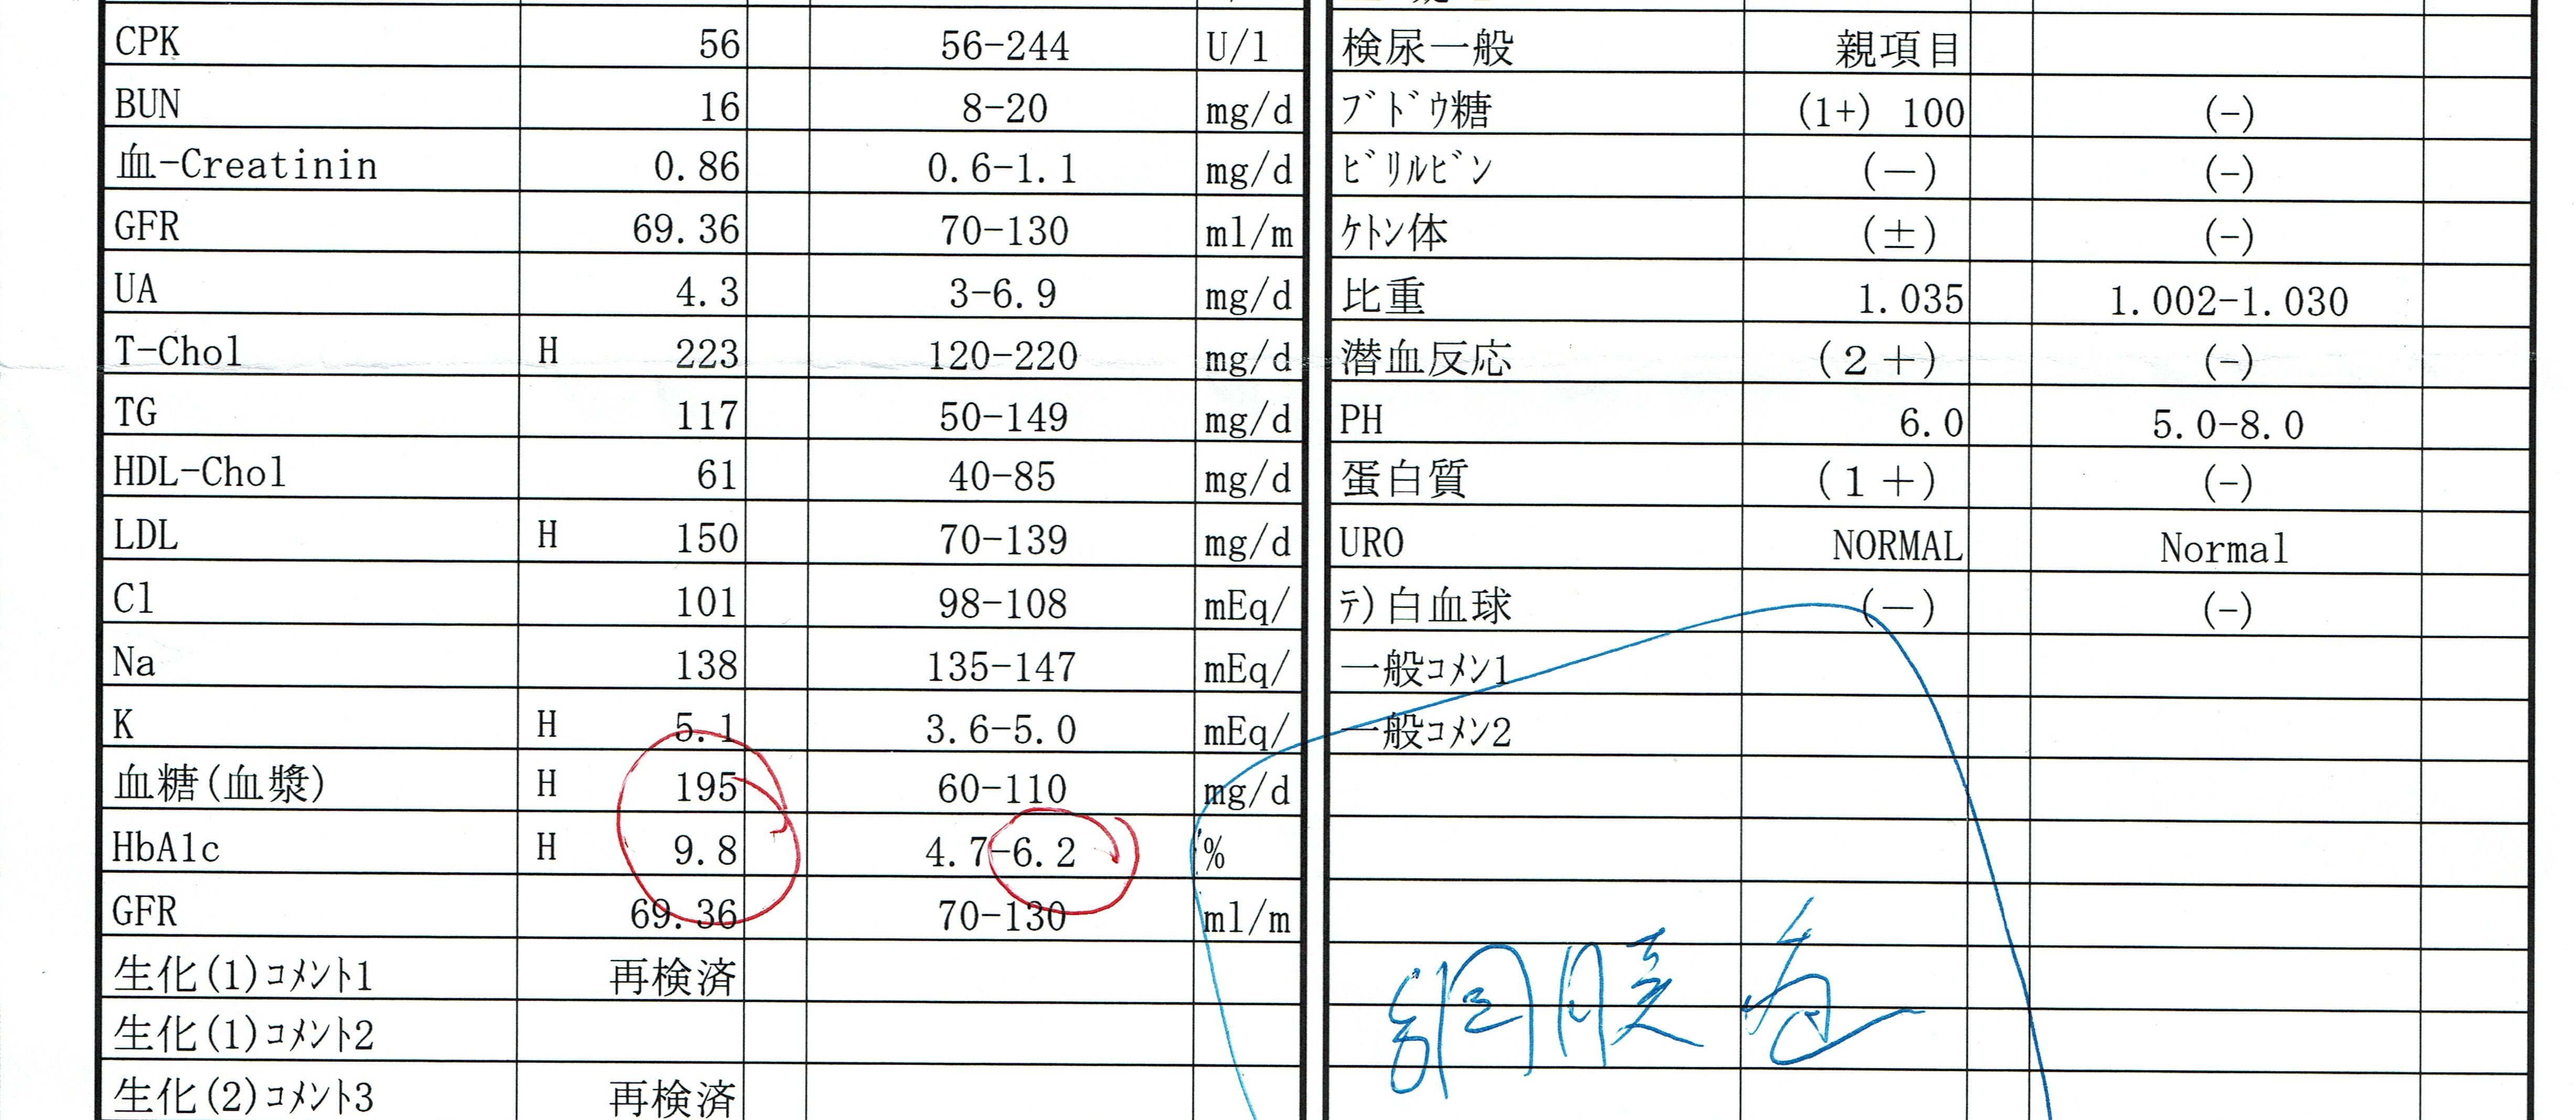 CPK 56 56-244 U/l
BUN 16 8-20 mg/d
血-Creatinin 0.86 0.6-1.1 mg/d
GFR 69.36 70-130 ml/m
UA 4.3 3-6.9 mg/d
T-Chol H 223 120-220 mg/d
TG 117 50-149 mg/d
HDL-Chol 61 40-85 mg/d
LDL H 150 70-139 mg/d
Cl 101 98-108 mEq/
Na 138 135-147 mEq/
K H 5.1 3.6-5.0 mEq/
血糖(血漿) H 195 60-110 mg/d
HbA1c H 9.8 4.7-6.2 %
GFR 69.36 70-130 ml/m
生化(1)ｺﾒﾝﾄ1 再検済
生化(1)ｺﾒﾝﾄ2
生化(2)ｺﾒﾝﾄ3 再検済
検尿一般 親項目
ﾌﾞﾄﾞｳ糖 (1+) 100 (-)
ﾋﾞﾘﾙﾋﾞﾝ (－) (-)
ｹﾄﾝ体 (±) (-)
比重 1.035 1.002-1.030
潜血反応 (２＋) (-)
PH 6.0 5.0-8.0
蛋白質 (１＋) (-)
URO NORMAL Normal
ﾃ)白血球 (－) (-)
一般ｺﾒﾝ1
一般ｺﾒﾝ2